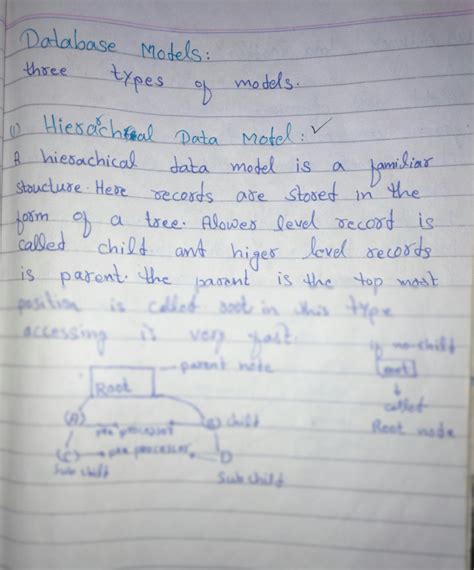 Database Models:
three types of models.
(1) Hierarchical Data Model: ✓
A hierachical data model is a familiar
structure. Here records are stored in the
form of a tree. Alower level record is
called child and higer level records
is parent. the parent is the top most
position is called root in this type
accessing is very fast.
if no-child
parent node
Root
root
called
Root node
(A)
(B) child
(C)
D
Sub child
Sub child